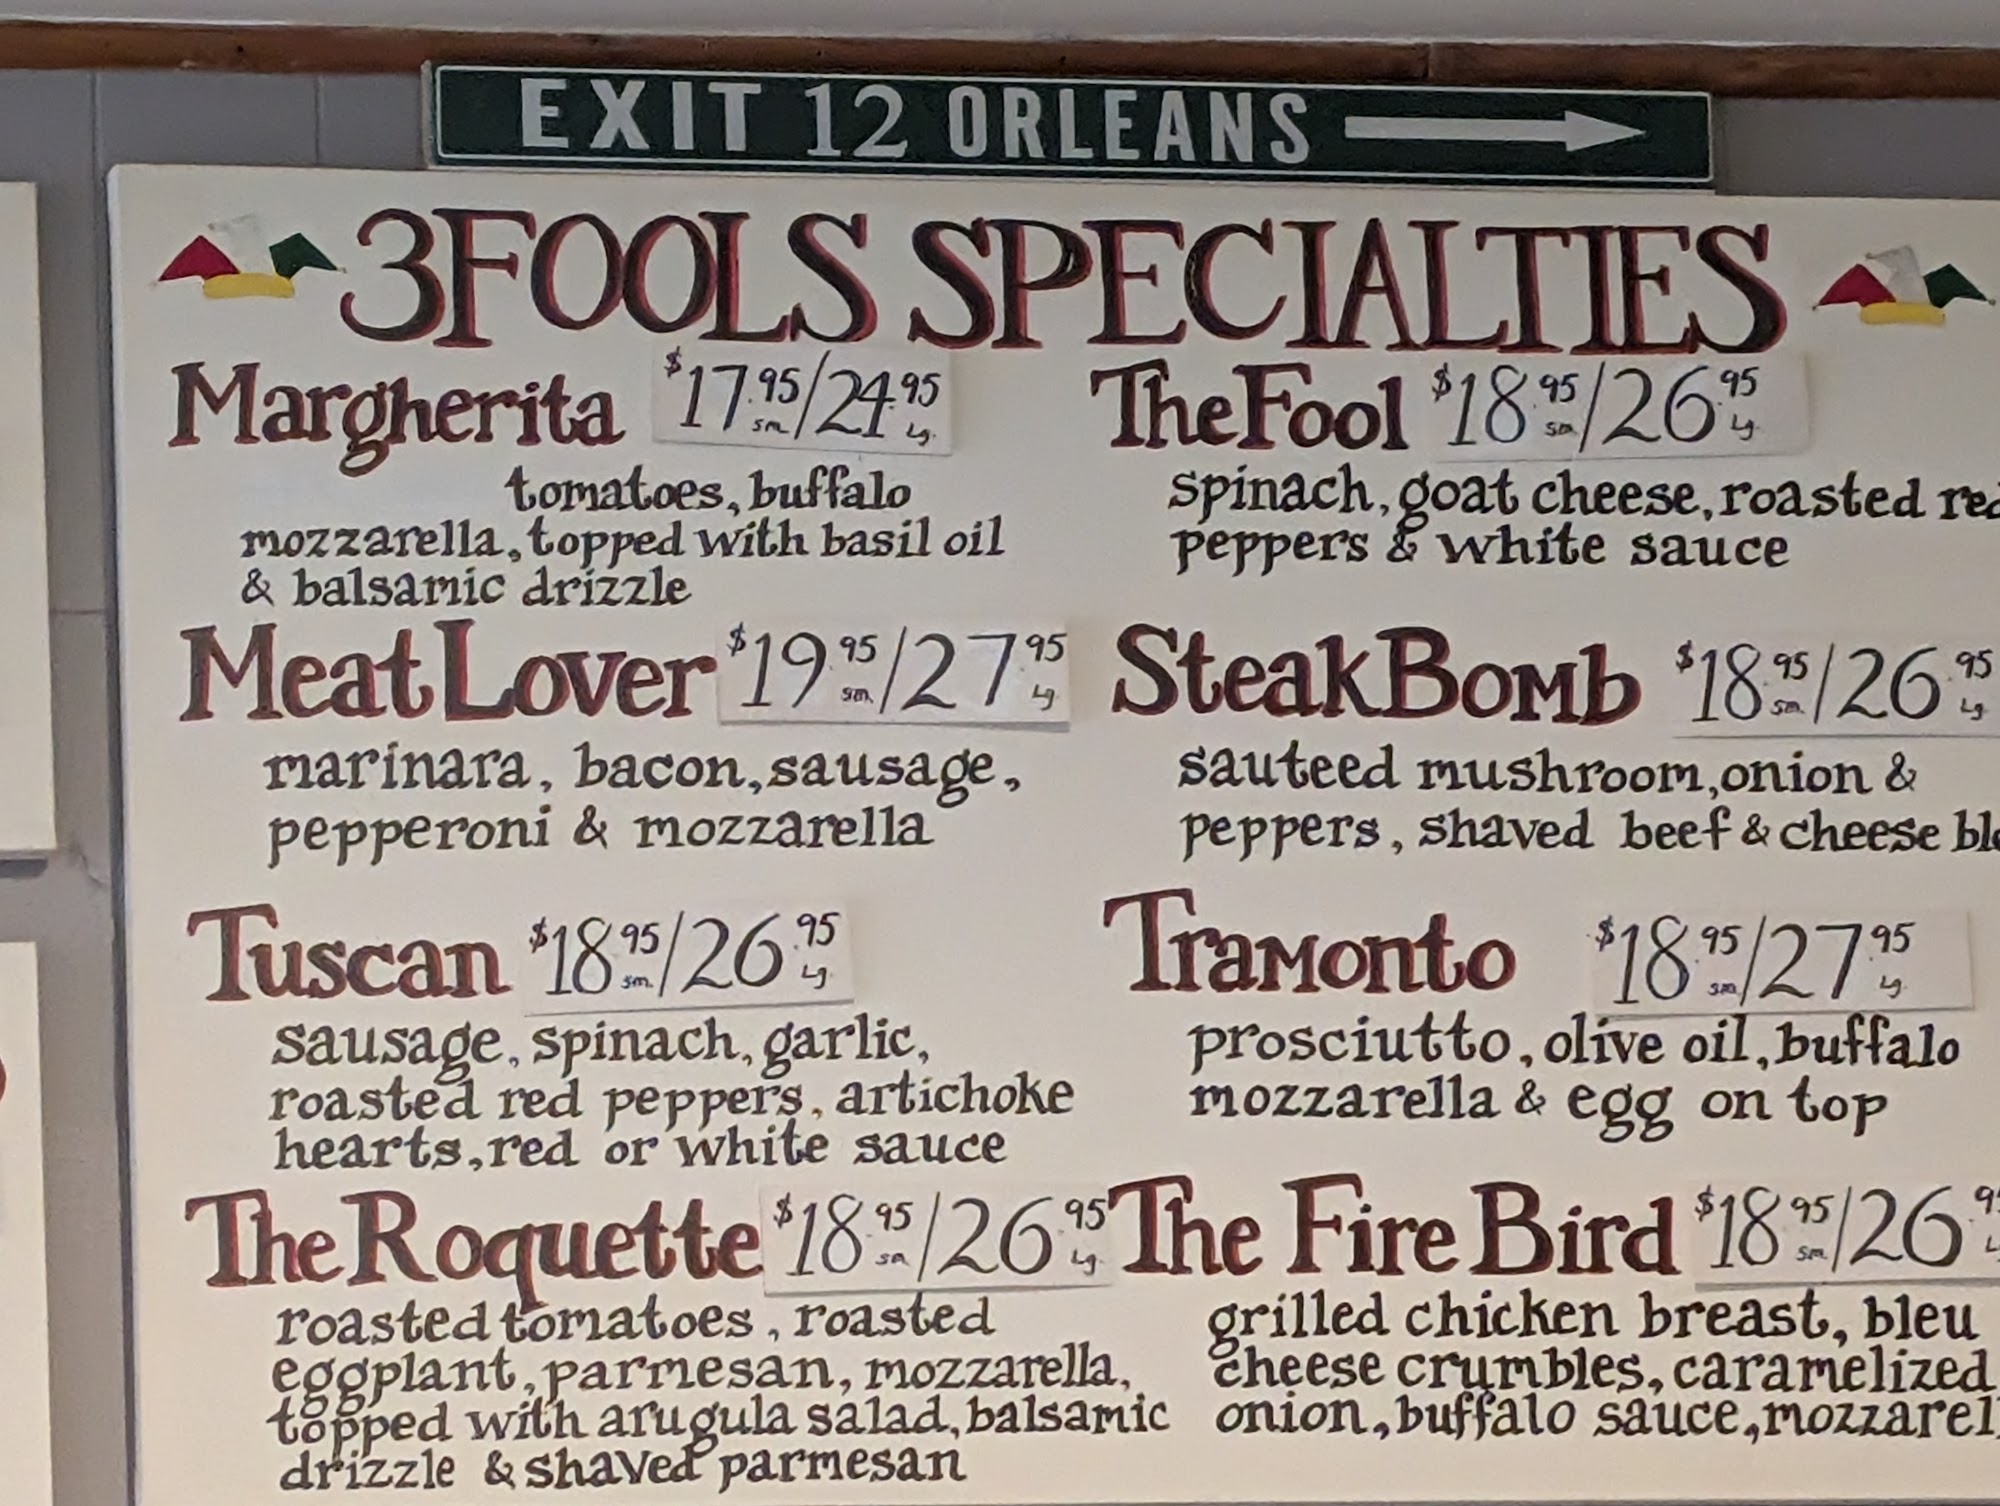 EXIT 12 ORLEANS
3FOOLS SPECIALTIES
Margherita $17.95 sm./24.95 Lg.
tomatoes, buffalo
mozzarella, topped with basil oil
& balsamic drizzle
Meat Lover $19.95 sm./27.95 Lg.
marinara, bacon, sausage,
pepperoni & mozzarella
Tuscan $18.95 sm./26.95 Lg.
sausage, spinach, garlic,
roasted red peppers, artichoke
hearts, red or white sauce
The Roquette $18.95 sm./26.95 Lg.
roasted tomatoes, roasted
eggplant, parmesan, mozzarella,
topped with arugula salad, balsamic
drizzle & shaved parmesan
The Fool $18.95 sm./26.95 Lg.
spinach, goat cheese, roasted red
peppers & white sauce
Steak Bomb $18.95 sm./26.95 Lg.
sauteed mushroom, onion &
peppers, shaved beef & cheese
Tramonto $18.95 sm./27.95 Lg.
prosciutto, olive oil, buffalo
mozzarella & egg on top
The Fire Bird $18.95 sm./26
grilled chicken breast, bleu
cheese crumbles, caramelized
onion, buffalo sauce,